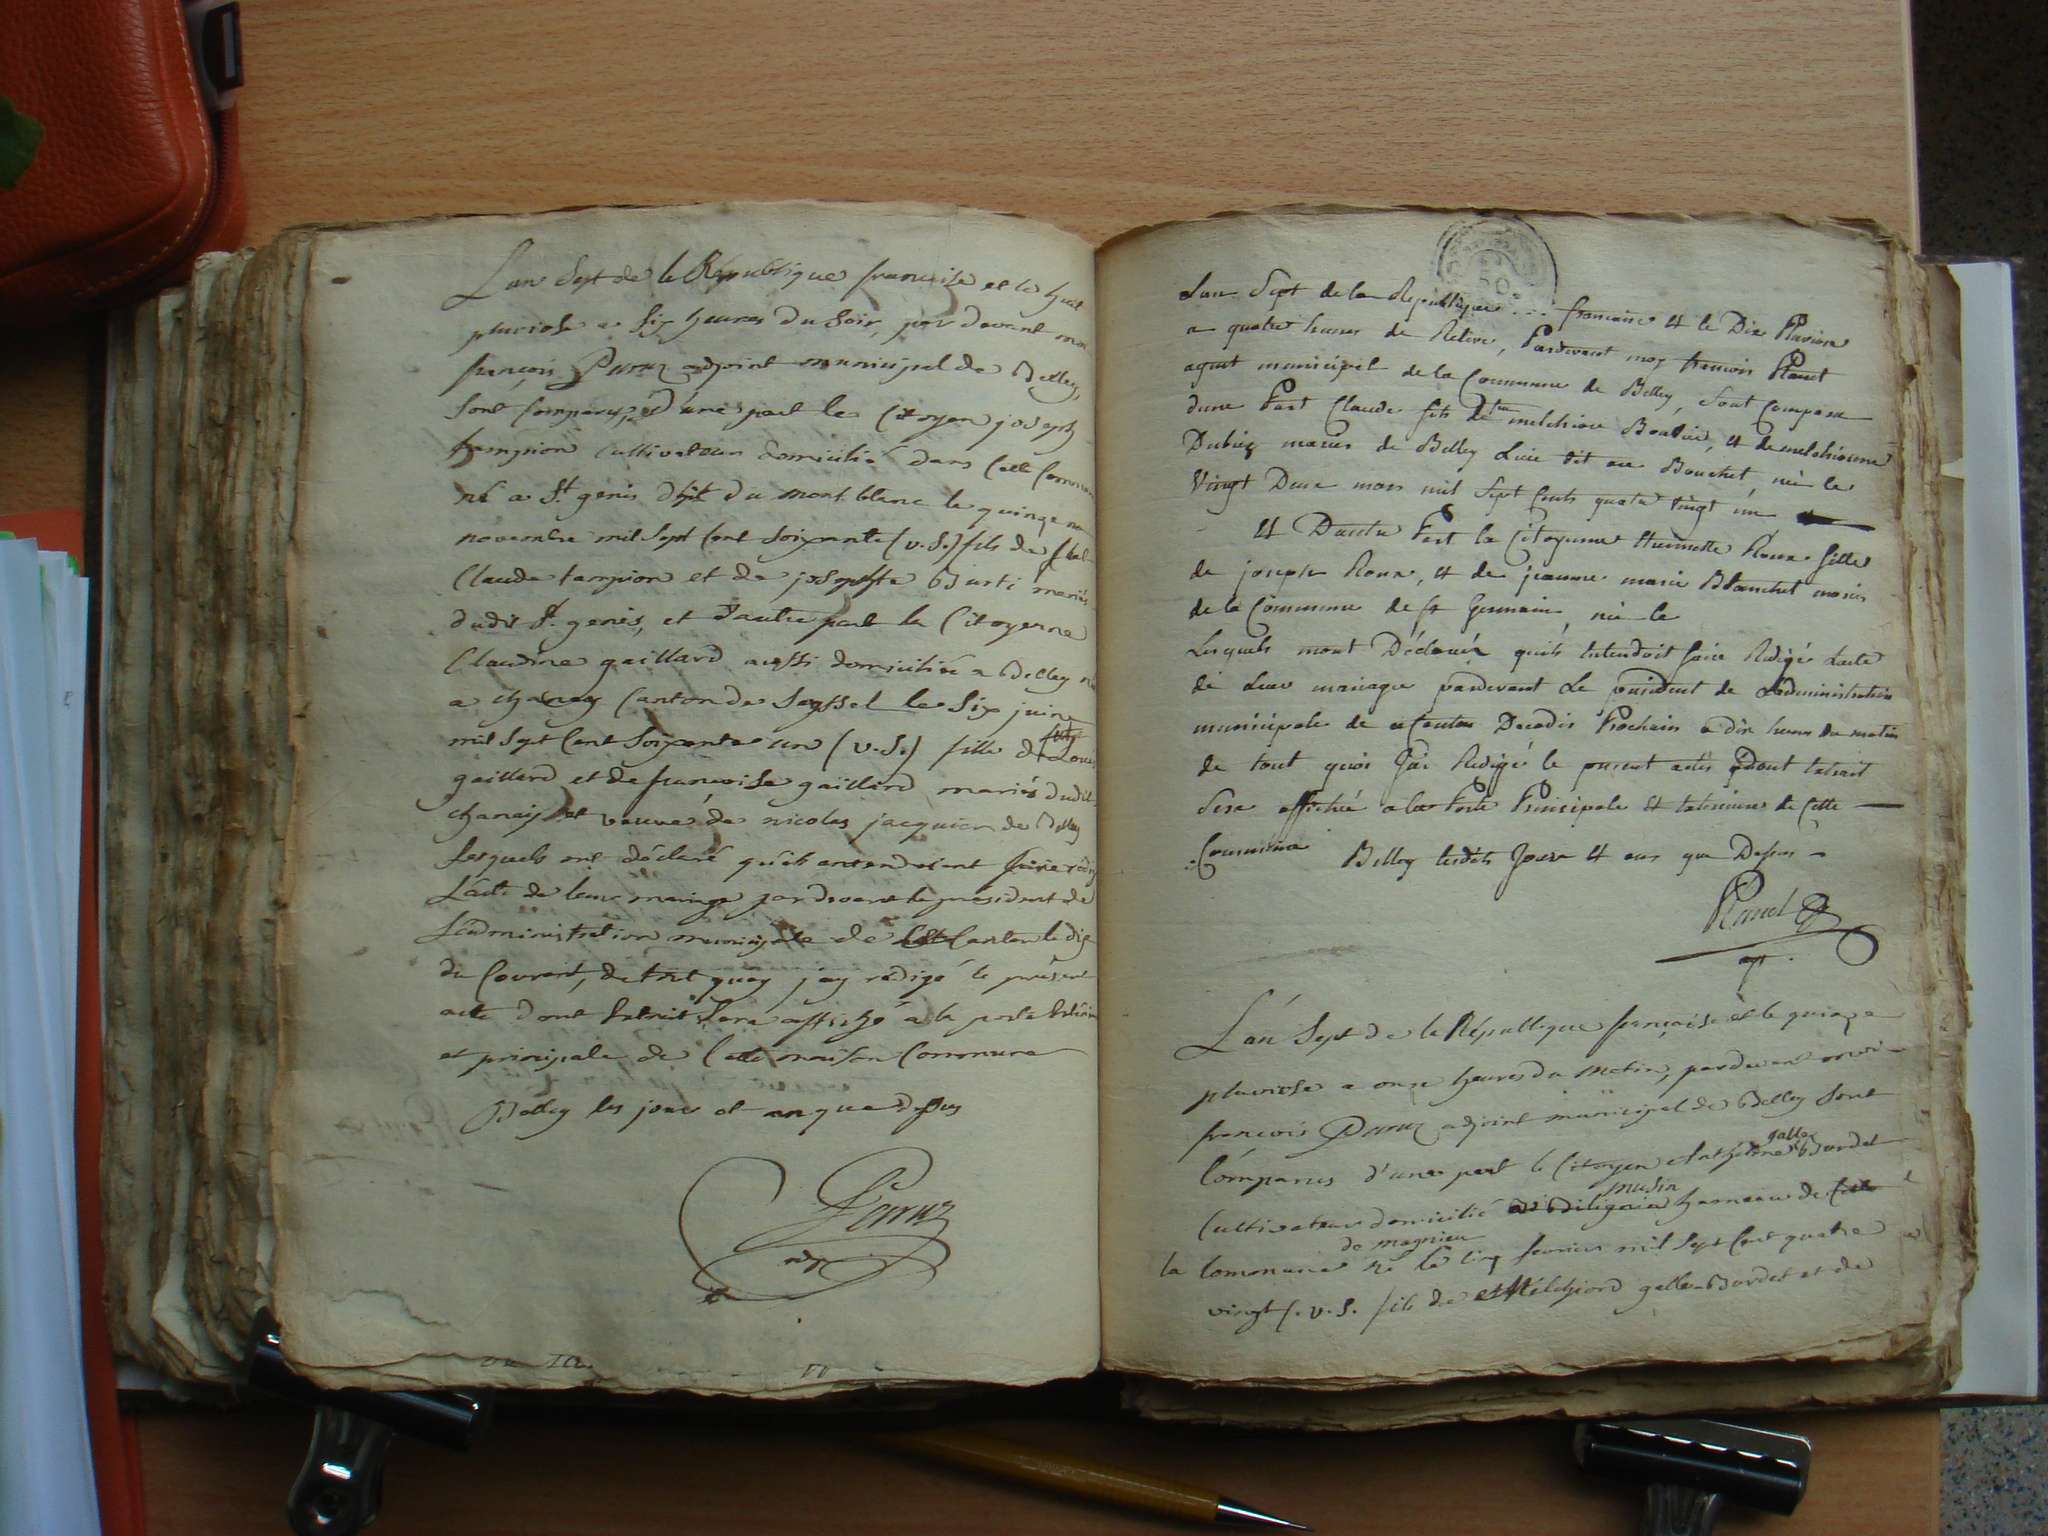 L'an Sept de la République française et le huit
pluviose a Six heures du Soir, par devant moi
françois Parraz adjoint municipal de Belley,
Sont Comparus, d'une part le Citoyen joseph
tampion Cultivateur domicilié dans Cette Commune
né a St. genis dpt du mont blanc le quinze
novembre mil Sept Cent Soixante (v.S.) fils de
Claude tampion et de josephte Burti mariés
dudit St. genis, et d'autre part la Citoyenne
Claudine gaillard aussi domiciliée a Belley née
a chanay Canton de Seyssel le Six juin
mil Sept Cent Soixante un (v.S.) fille de Louis
gaillard et de françoise gaillard mariés dudit
chanay et veuve de nicolas jacquier de Belley
Lesquels ont déclaré qu'ils entendoient faire rédiger
L'acte de leur mariage par devant le président de
L'administration municipale de Canton le dix
du Courant, de tout quoy j'ay redigé le présent
acte dont Extrait Sera affiché a la porte Extérieure
et principale de Cette maison Commune
Belley les jour et an que dessus
Parraz
adj
Lan Sept de la Republique ... francaise & le Dix Pluviose
a quatre heures de Relevé, Pardevant moy francois
agent municipal de la Commune de Belley, Sont Comparu
dune Part Claude fils de feu melchior Bouvier, & de melchionne
Dubiez mariés de Belley Luie dit au Bouchet, né le
Vingt Deux mars mil Sept Cents quatre Vingt un
& Dautre Part la Citoyenne Roux fille
de joseph Roux, & de jeanne marie Blanchet mariés
de la Commune de St Germain, née le
Lesquels mont Déclarés quils Entendoit faire Redigé Lacte
de Leur mariage pardevant Le president de Ladministration
municipale de ce Canton Decadis Prochain a dix heures du matin
de tout quoi J'ai Redigé le present acte dont Extrait
Sera affiché a la Porte Principale & Exterieure de Cette
Commune Belley lesdits Jour & an que Dessus
50
L'an Sept de la République française et le quinze
pluviose a onze heures du Matin, pardevant moi
françois Parraz adjoint municipal de Belley Sont
Comparus d'une part le Citoyen Anthelme galley Bordet
Cultivateur domicilié musin hameau de
la Commune de magnieu né le Cinq fevrier mil Sept Cent quatre
vingt (v.S. fils de Melchiord galley-Bordet et de